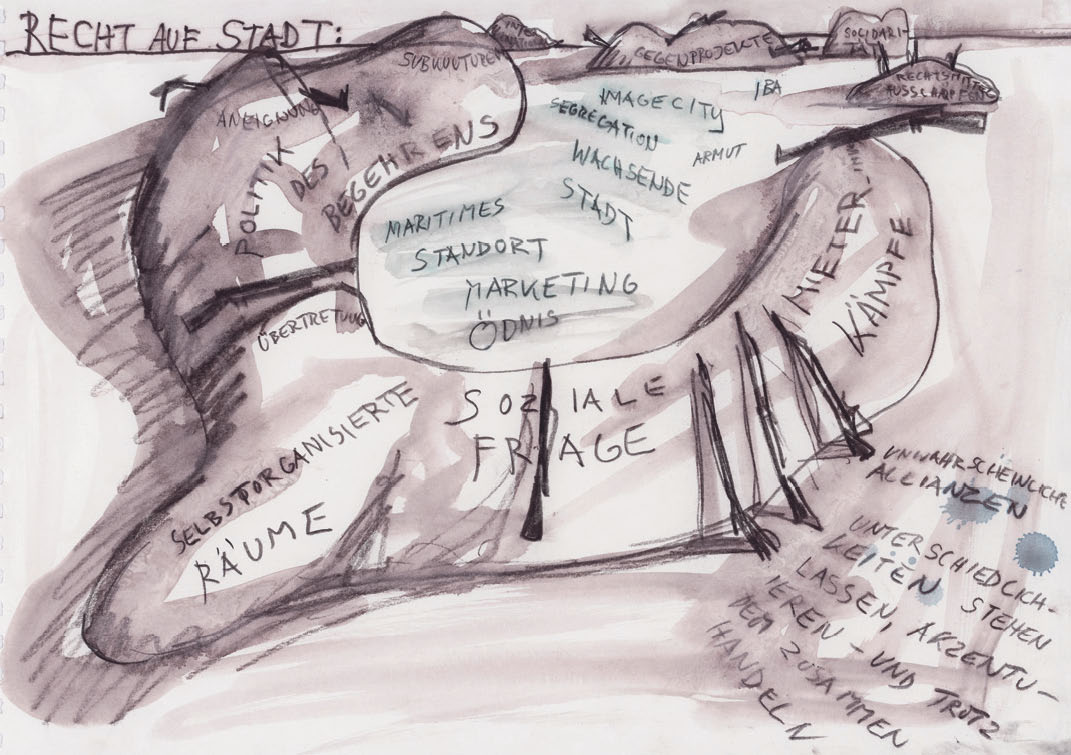 RECHT AUF STADT:
SUBKULTUREN
INTER
GEGENPROJEKTE
SOLIDARI-
TÄT
RECHTSMITTEL
AUSSCHÖPFEN
ANEIGNUNG
POLITIK
DES
BEGEHRENS
IMAGE CITY
IBA
SEGREGATION
WACHSENDE
STADT
ARMUT
MARITIMES
STANDORT
MARKETING
ÖDNIS
MIETER_INNEN
KÄMPFE
ÜBERTRETUNG
SOZIALE
FRAGE
SELBSTORGANISIERTE
RÄUME
UNWAHRSCHEINLICHE
ALLIANZEN
UNTERSCHIEDLICH-
KEITEN STEHEN
LASSEN, AKZENTU-
IEREN - UND TROTZ
DEM ZUSAMMEN
HANDELN